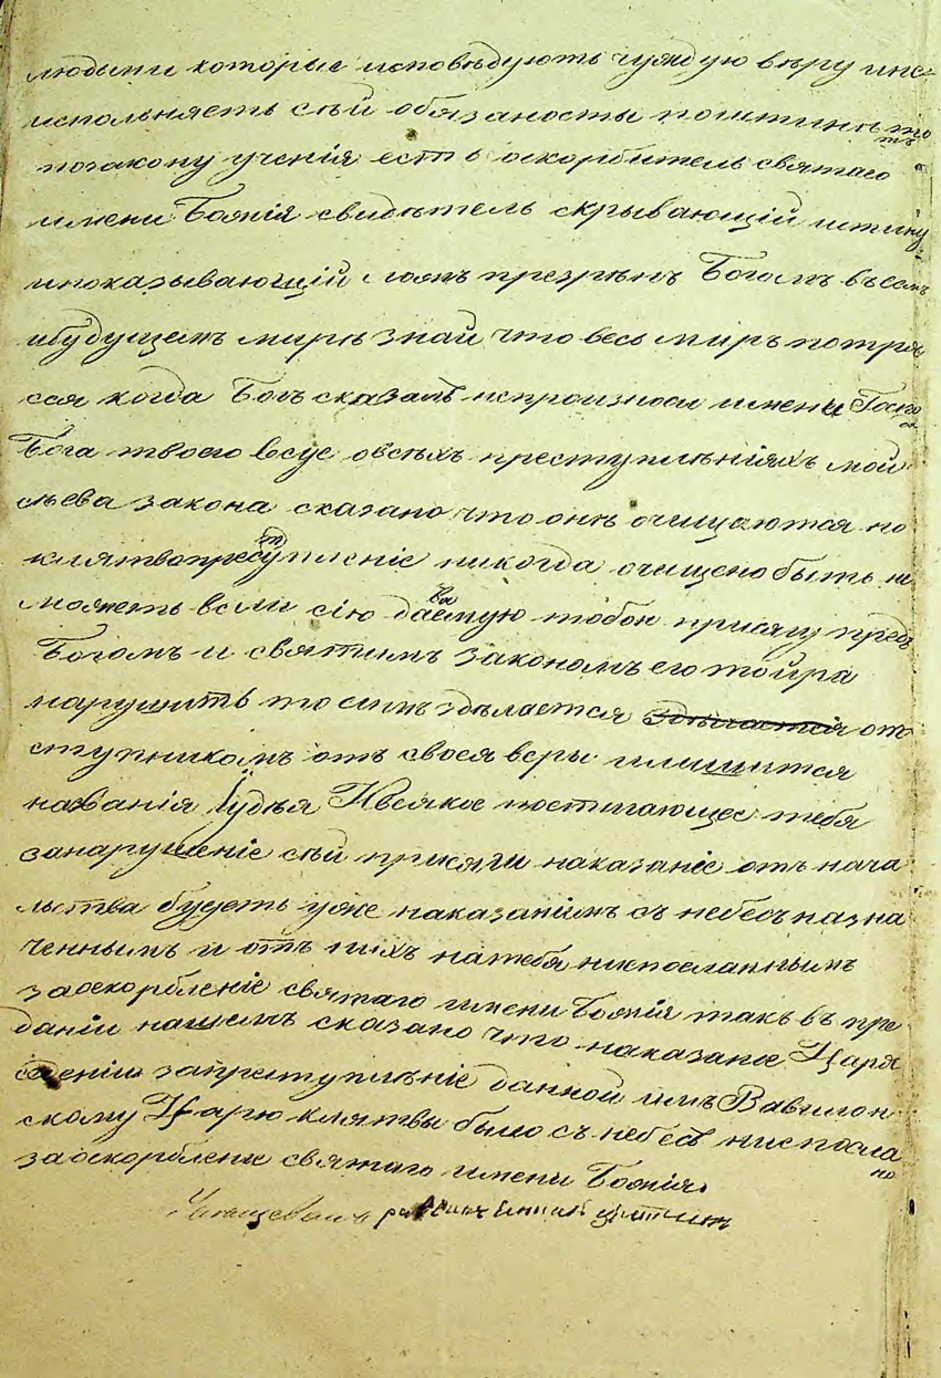 людьми которые исповѣдуютъ чуждую вѣру и не
исполняетъ сѣй обязаности почтинкъ то
позакону ученія естъ оскорбитель святаго
имени Божія свидѣтель скрывающій истину
ипоказывающій ложъ презрѣнъ Богомъ въ семъ
ибудущемъ мирѣ знай что весь миръ потря
сся когда Богъ сказалъ непроизноси имени Госпо
Бога твоего всуе овсѣхъ преступлѣніяхъ мой
сѣева закона сказано что онѣ очищаются но
клятвопреступленіе никогда очищено быть не
можетъ если сію даваемую тобою присягу предъ
Богомъ и святымъ закономъ его тойра
нарушить то симъ здѣлается отъ
ступникомъ отъ своея веры илишится
названія Іудѣя Ивсякое постигающее тебя
занарушеніе сѣй присяги наказаніе отъ нача
льства будетъ уже наказаніимъ съ небесъ назна
ченнымъ и отъ нихъ натебя ниспосланнымъ
заоскорбленіе святаго имени Божія такъ въ пре
даніи нашемъ сказано что наказаніе Царя
запреступлѣніе данной имъ Вавилон
скому Царю клятвы было съ небесъ ниспосла
но
заоскорбленіе святаго имени Божія.